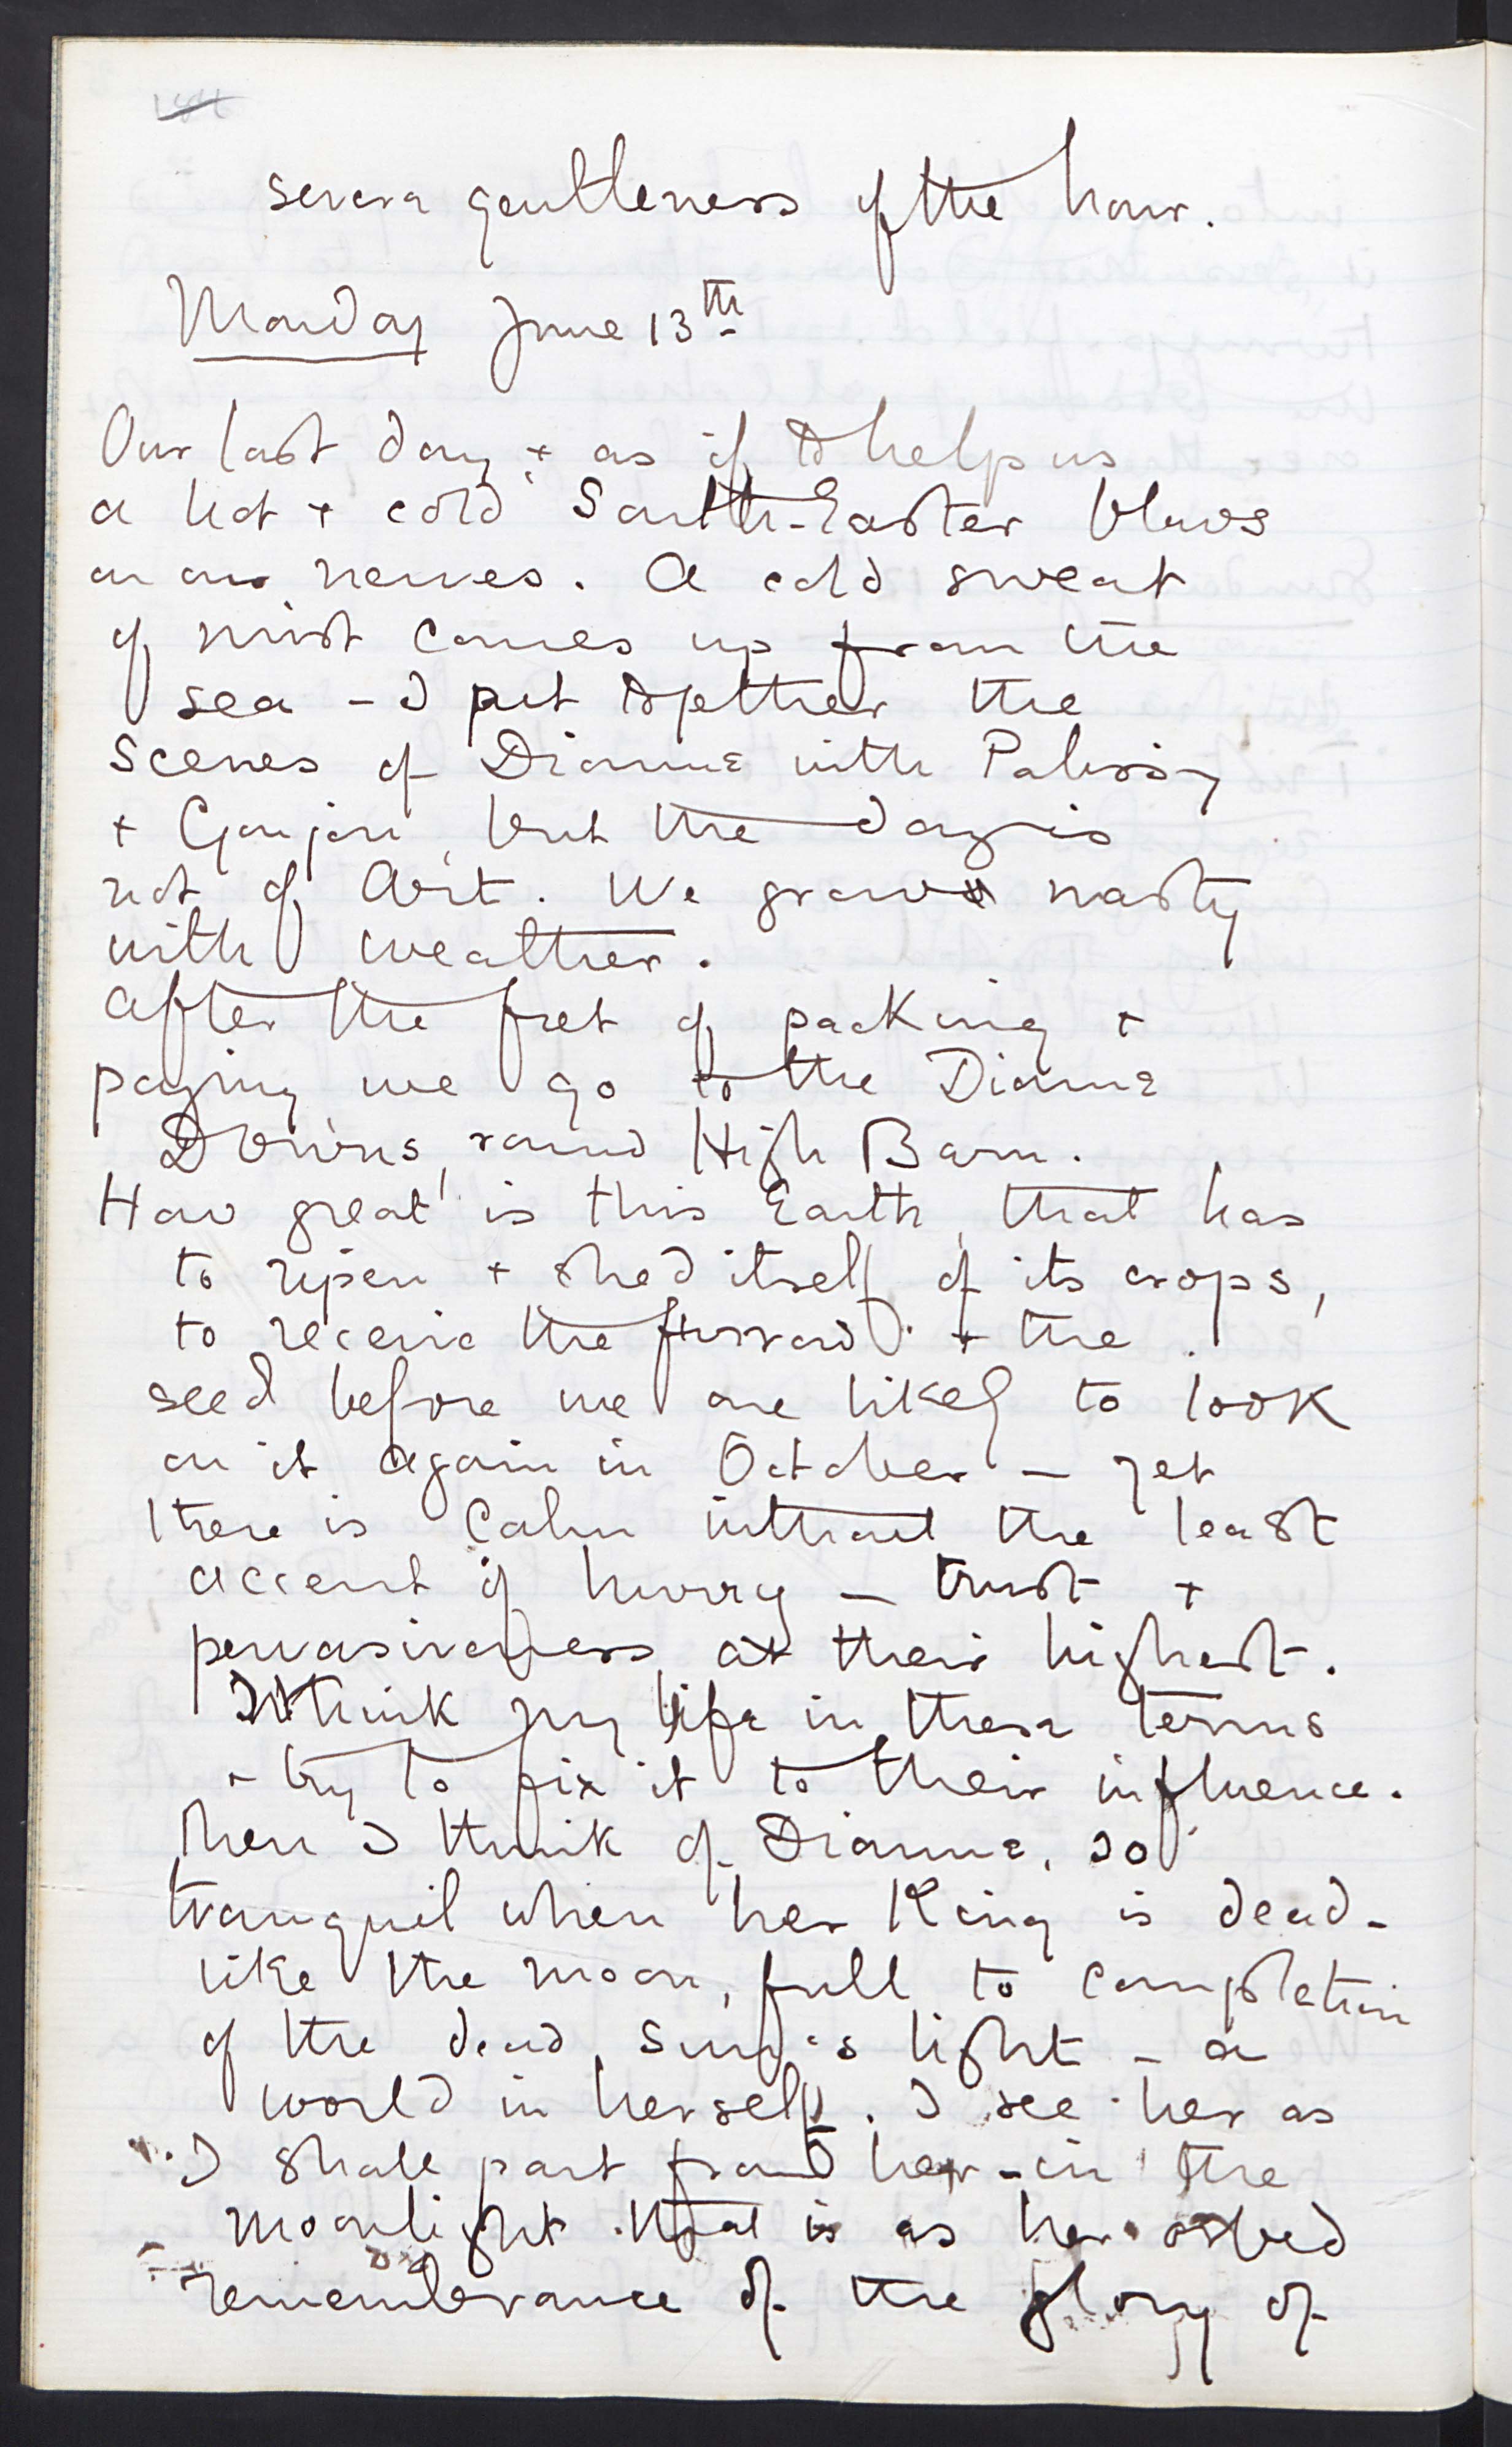 severa gentleness of the hour.
Monday June 13th
Our last day + as if to help us
a hot + cold South-Easter blows
on our nerves. A cold sweat
of mist comes up from the
sea – I put together the
scenes of Dianne with Palissy
+ Goujon, but the day is
not of Art. We grow nasty
with weather.
After the fret of packing +
paying we go to the Dianne
Downs, round High Barn.
How great is this Earth, that has
to ripen + shed itself of its crops,
to receive the furrow + the
seed before we are likely to look
on it again in October – yet
there is Calm without the least
accent of hurry – trust +
pervasiveness at their highest.
I think my life in these terms
+ try to fix it to their influence.
Then I think of Dianne, so
tranquil when her King is dead –
like the moon, full to completion
of the dead Sun's light – a
world in herself. I see her as
I shall part from her – in the
moonlight that is as her orbed
remembrance of the glory of